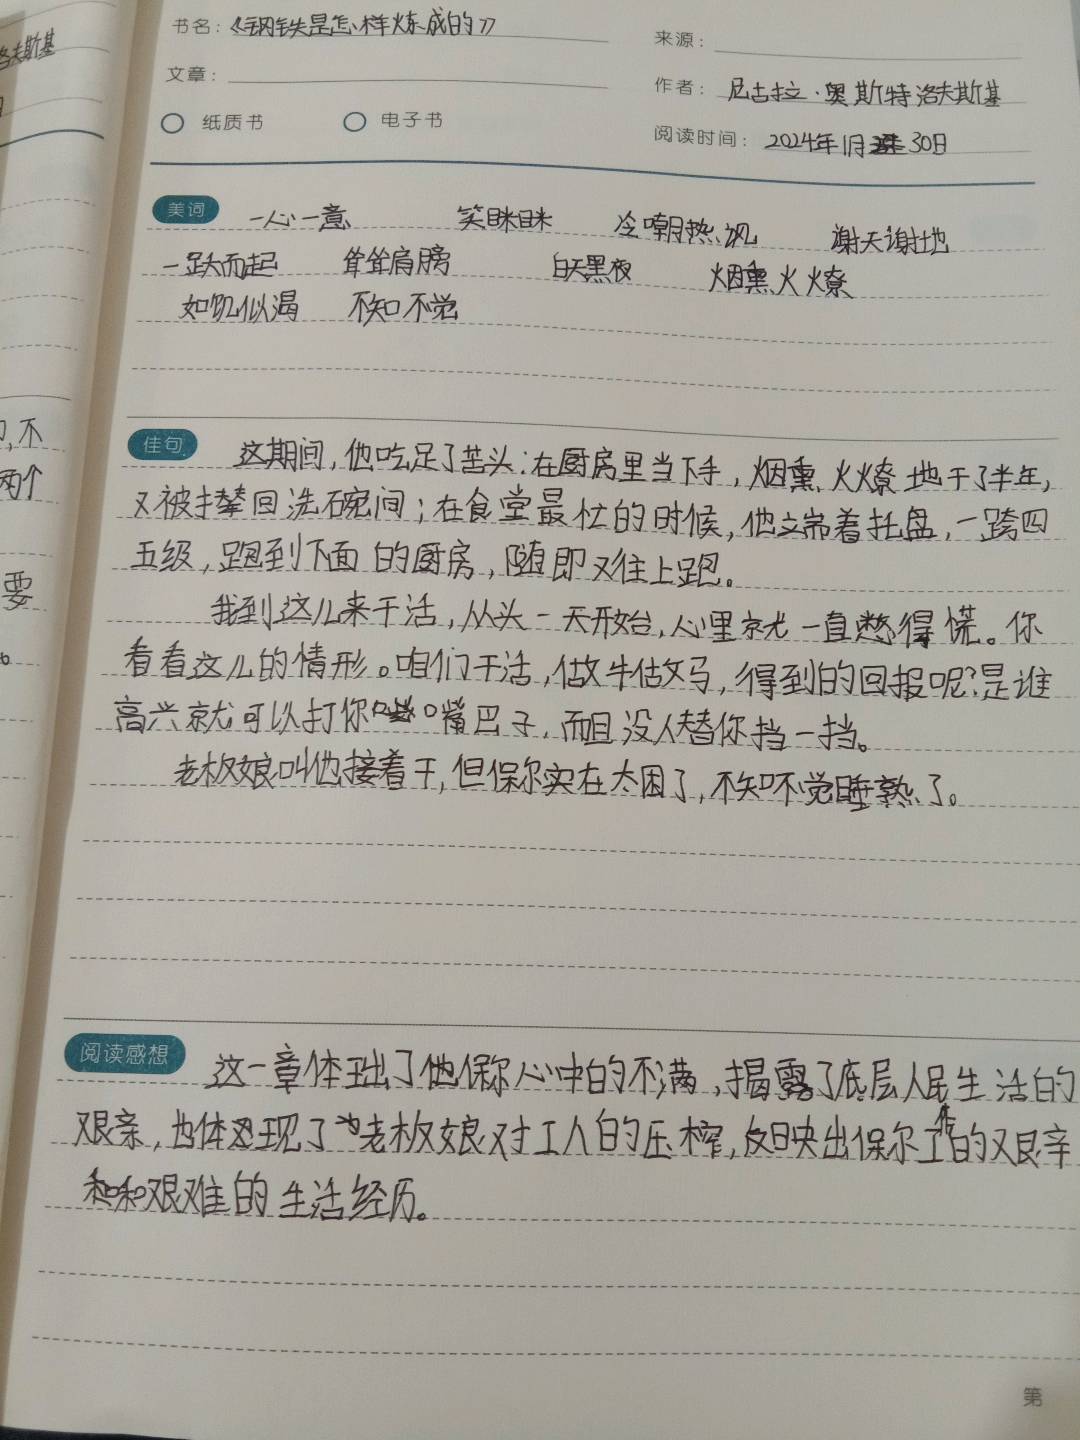 书名：《钢铁是怎样炼成的》
来源：
文章：
作者：尼古拉·奥斯特洛夫斯基
纸质书 电子书
阅读时间：2024年1月30日
洛夫斯基
美词 一心一意 笑眯眯 冷嘲热讽 谢天谢地
一跃而起 耸耸肩膀 白天黑夜 烟熏火燎
如饥似渴 不知不觉
佳句 这期间，他吃足了苦头：在厨房里当下手，烟熏火燎地干了半年，
又被撵回洗碗间；在食堂最忙的时候，他端着托盘，一跨四
五级，跑到下面的厨房，随即又往上跑。
我到这儿来干活，从头一天开始，心里就一直憋得慌。你
看看这儿的情形。咱们干活，做牛做马，得到的回报呢？是谁
高兴就可以打你嘴巴子，而且没人替你挡一挡。
老板娘叫他接着干，但保尔实在太困了，不知不觉睡熟了。
，不
两个
要
阅读感想 这一章体现出了他保尔心中的不满，揭露了底层人民生活的
艰亲，也体现了老板娘对工人的压榨，反映出保尔工作的艰辛
和艰难的生活经历。
第